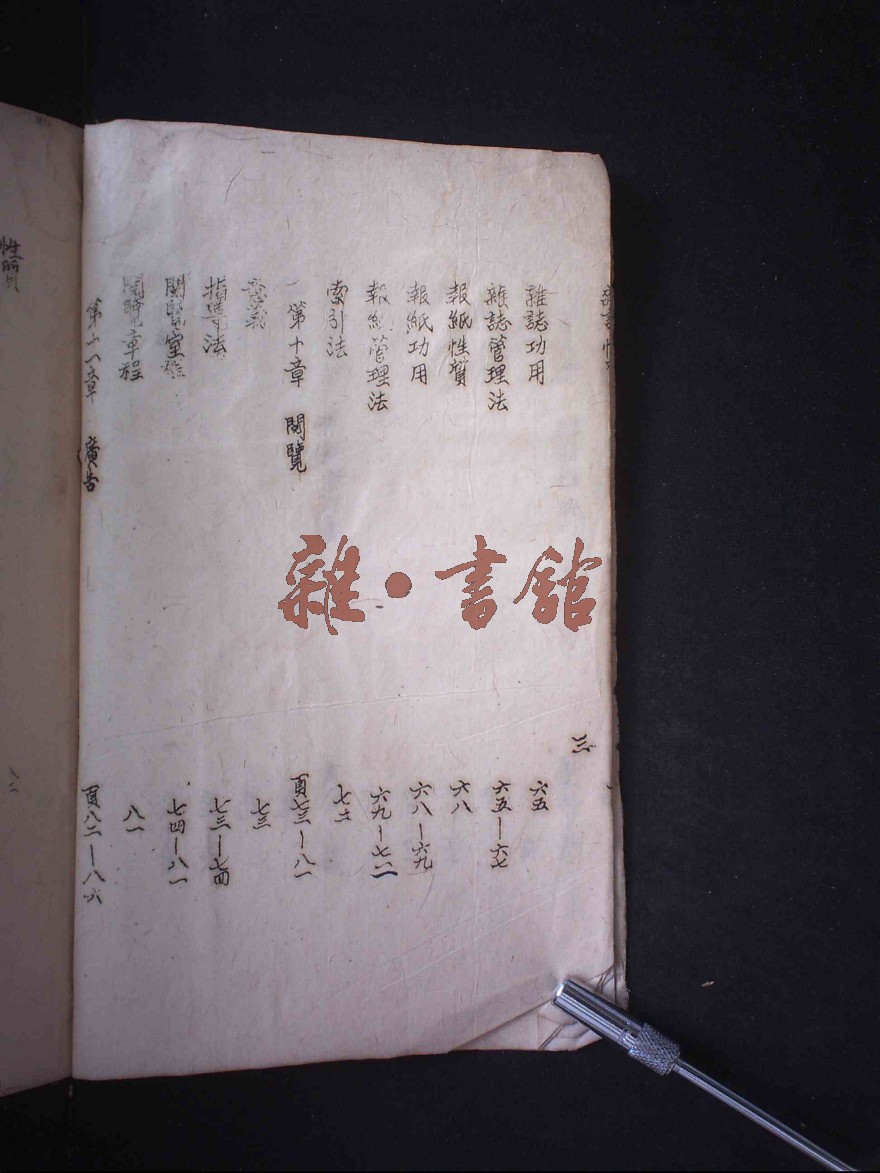 三
雜誌功用 六五
雜誌管理法 六五—六七
報紙性質 六八
報紙功用 六八—六九
報紙管理法 六九—七二
索引法 七二
第十章 閱覽 頁七三—八一
意義 七三
指導法 七三—七四
閱覽室 七四—八一
閱覽章程 八一
第十一章 廣告 頁八二—八六
性質
雜·書館